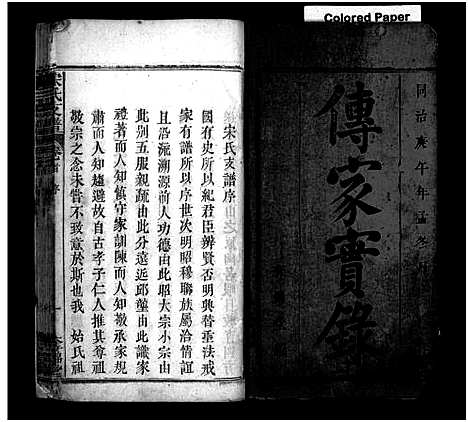 Colored Paper
同治庚午年孟冬
傳家實錄
宋氏支譜序
國有史所以紀君臣辨賢否明興替垂法戒
家有譜所以序世次明昭穆聯族屬洽情誼
且沿流溯源前人功德由此昭大宗小宗由
此别五服親疏由此分遠近邱壟由此識家
禮著而人知慎守家訓陳而人知敬承家規
肅而人知趨避故自古孝子仁人推其尊祖
敬宗之念未嘗不致意於斯也我 始氏祖
宋氏支譜